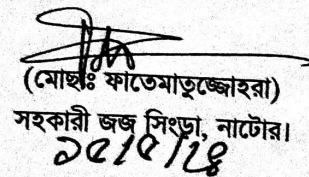 (মোছাঃ ফাতেমাতুজ্জোহরা)
সহকারী জজ সিংড়া, নাটোর।
১৫/৫/২৪